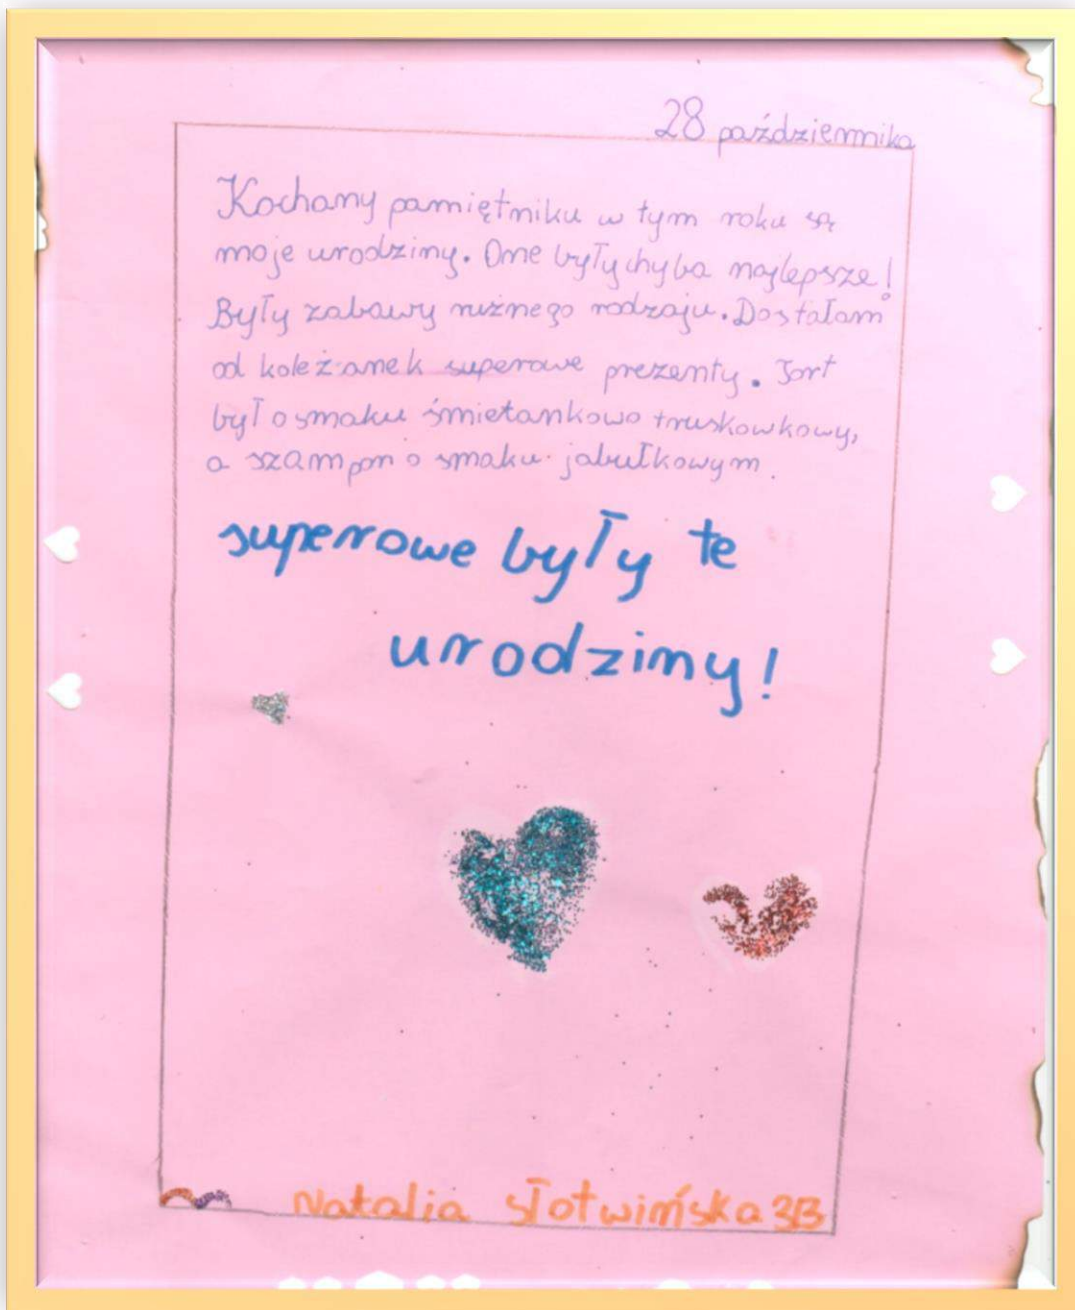 28 października
Kochany pamiętniku w tym roku są
moje urodziny. One były chyba najlepsze!
Były zabawy rużnego rodzaju. Dostałam
od koleżanek superowe prezenty. Tort
był o smaku śmietankowo truskowkowy,
a szampon o smaku jabułkowym.
superowe były te
urodziny!
Natalia Słotwińska 3B